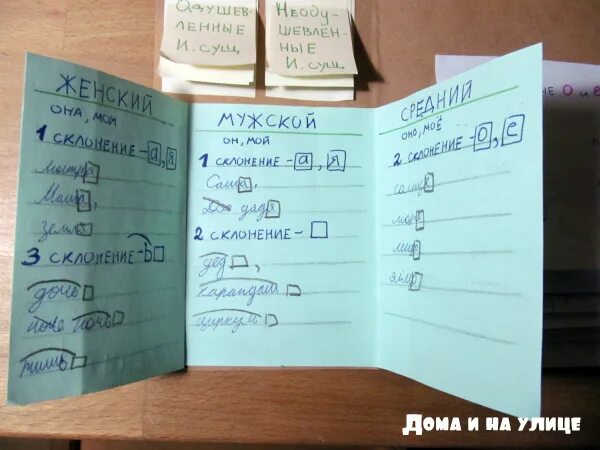 Одушев-
ленные
И. сущ.
Неоду-
шевлен-
ные
И. сущ
ЖЕНСКИЙ
ОНА, МОЯ
1 СКЛОНЕНИЕ - а, я
Маша,
земля
3 СКЛОНЕНИЕ - Ь
дочь
ночь
МУЖСКОЙ
ОН, МОЙ
1 СКЛОНЕНИЕ - а, я
Саша,
дядя
2 СКЛОНЕНИЕ -
дед,
карандаш
циркуль
СРЕДНИЙ
ОНО, МОЁ
2 СКЛОНЕНИЕ - о, е
солнце
море
яйцо
НЕ О и е
Дома и на улице